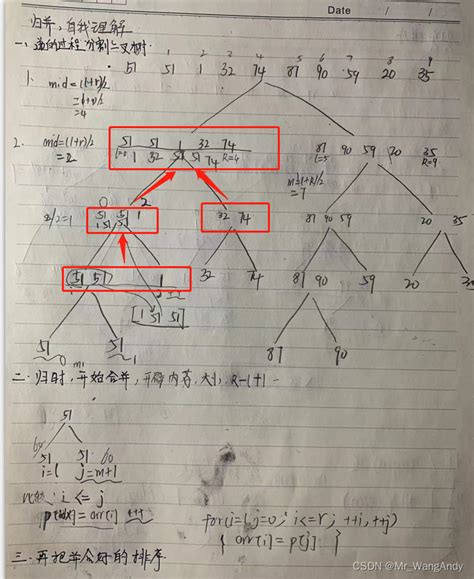 Date / /
归并,自我理解
一、递的过程,分割二叉树.
1 2 3 4 5 6 7 8 9
51 51 1 32 74 87 90 59 20 35
1. mid=(l+r)/2
=4
2. mid=(l+r)/2
=2
51 51 1 32 74
1 32 51 51 74 R=4
87 90 59 20 35
l=5 R=9
=7
0 2
2/2=1 51 51 1
1 51 51
32 74
87 90 59
20 35
51 51 1
32 74 87 90 59 20
[1 51 51]
51 0 51 1
87 90
二.归时,开始合并,开辟内存,大小 R-l+1
51
51 51
i=l j=m+1
i <= j
= arr[i]
for(i=l, j=0; i<=r; ++i, ++j)
{ arr[i] = p[j] }
三.再把并合好的排序
CSDN @Mr_WangAndy